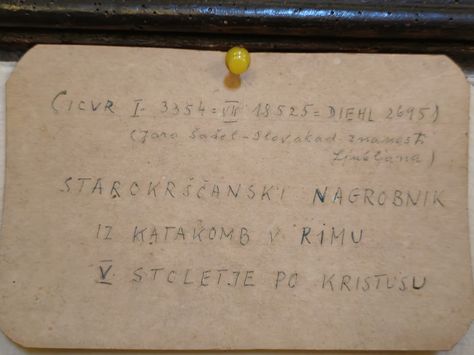 (ICVR I. 3354 = VII 18525 = DIEHL 2695)
(Jara Šašel - Slov. akad. znanosti
Ljubljana)
STAROKRŠČANSKI NAGROBNIK
IZ KATAKOMB V RIMU
V. STOLETJE PO KRISTUSU